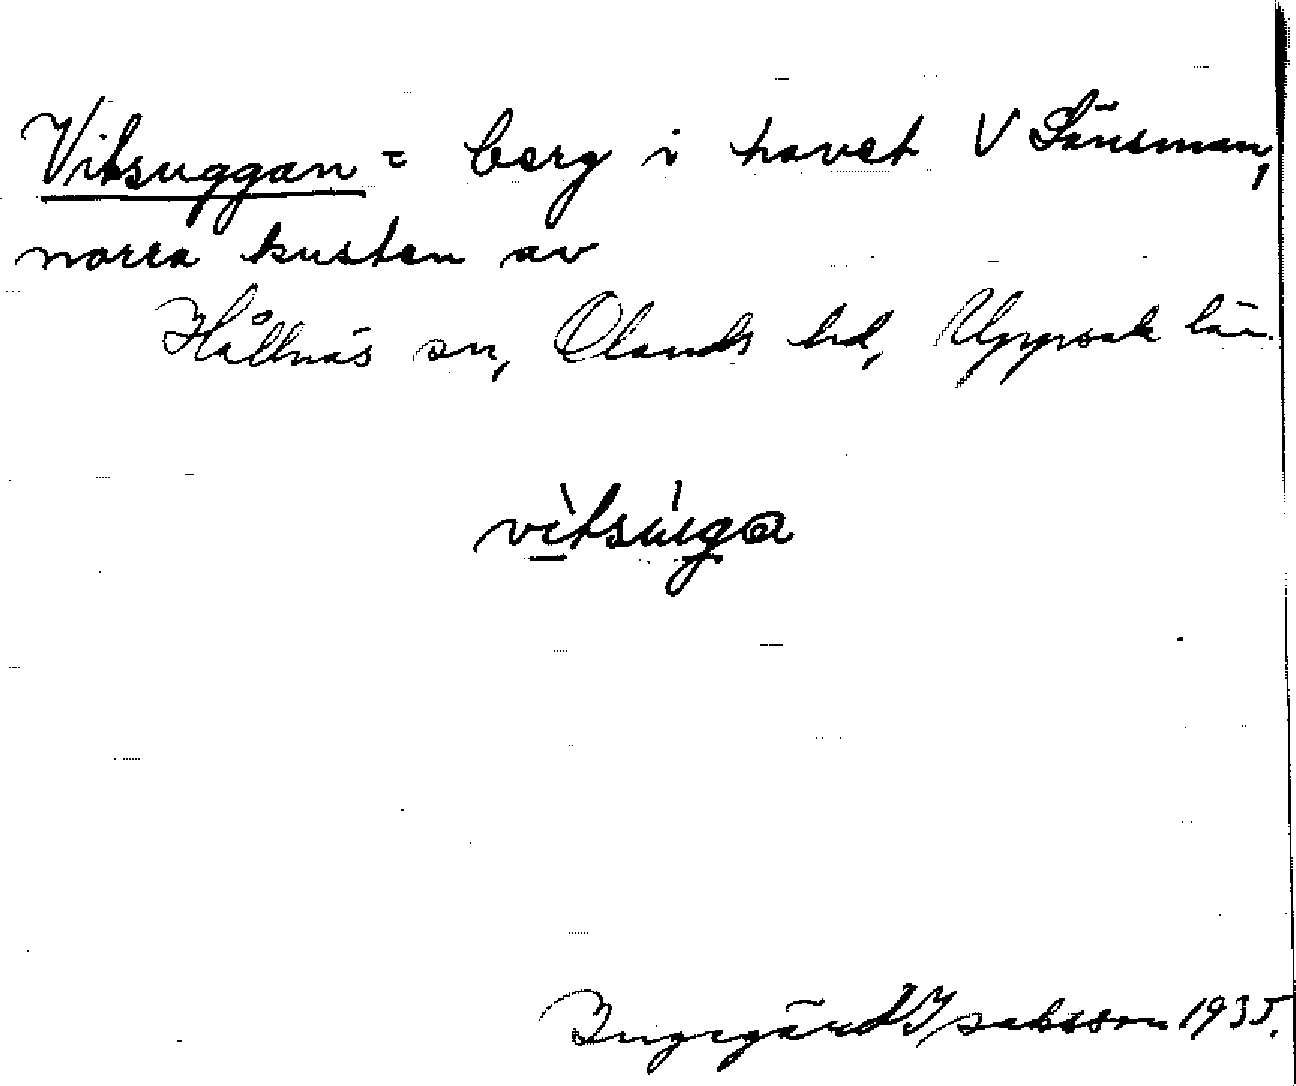 Vitsuggan = berg i havet V Länsman,
norra kusten av
Hållnäs sn, Olands hd, Uppsala län.
vìtsùga
Ingegärd Isaksson 1935.